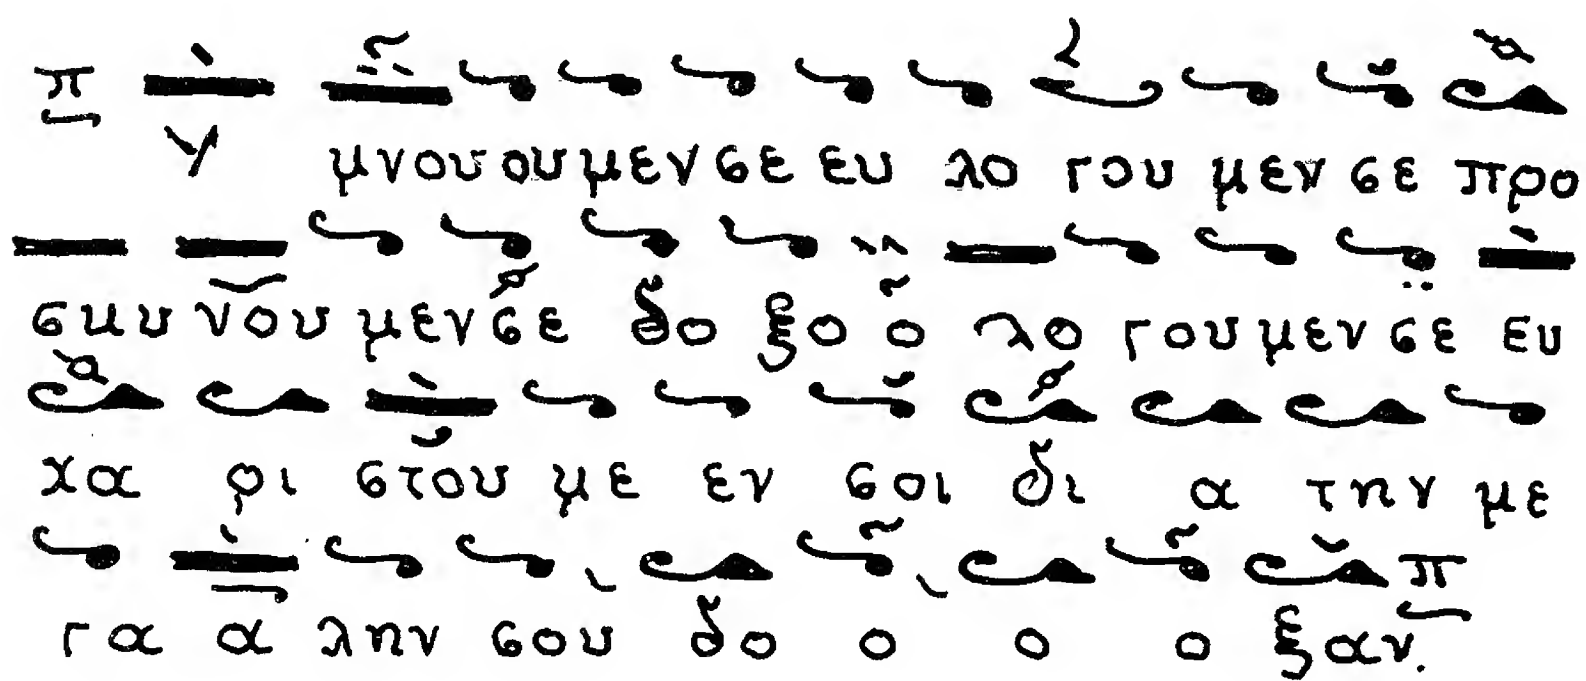 π
Υ μνου ου μεν σε ευ λο γου μεν σε προ
σκυ νου μεν σε δο ξο ο λο γου μεν σε ευ
χα ρι στου με εν σοι δι α την με
π
γα α λην σου δο ο ο ο ξαν.